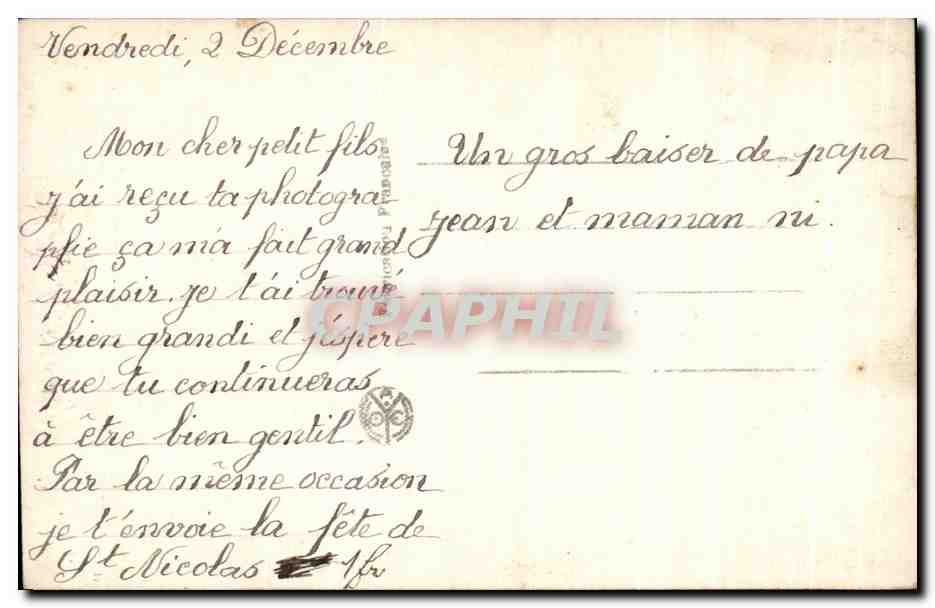 Vendredi, 2 Décembre
Mon cher petit fils
j'ai reçu ta photogra-
phie ça m'a fait grand
plaisir. je t'ai trouvé
bien grandi et j'éspère
que tu continueras
à être bien gentil.
Par la même occasion
je t'envoie la fête de
St Nicolas 1fr
Un gros baiser de papa
Jean et maman ni.
CPAPHIL